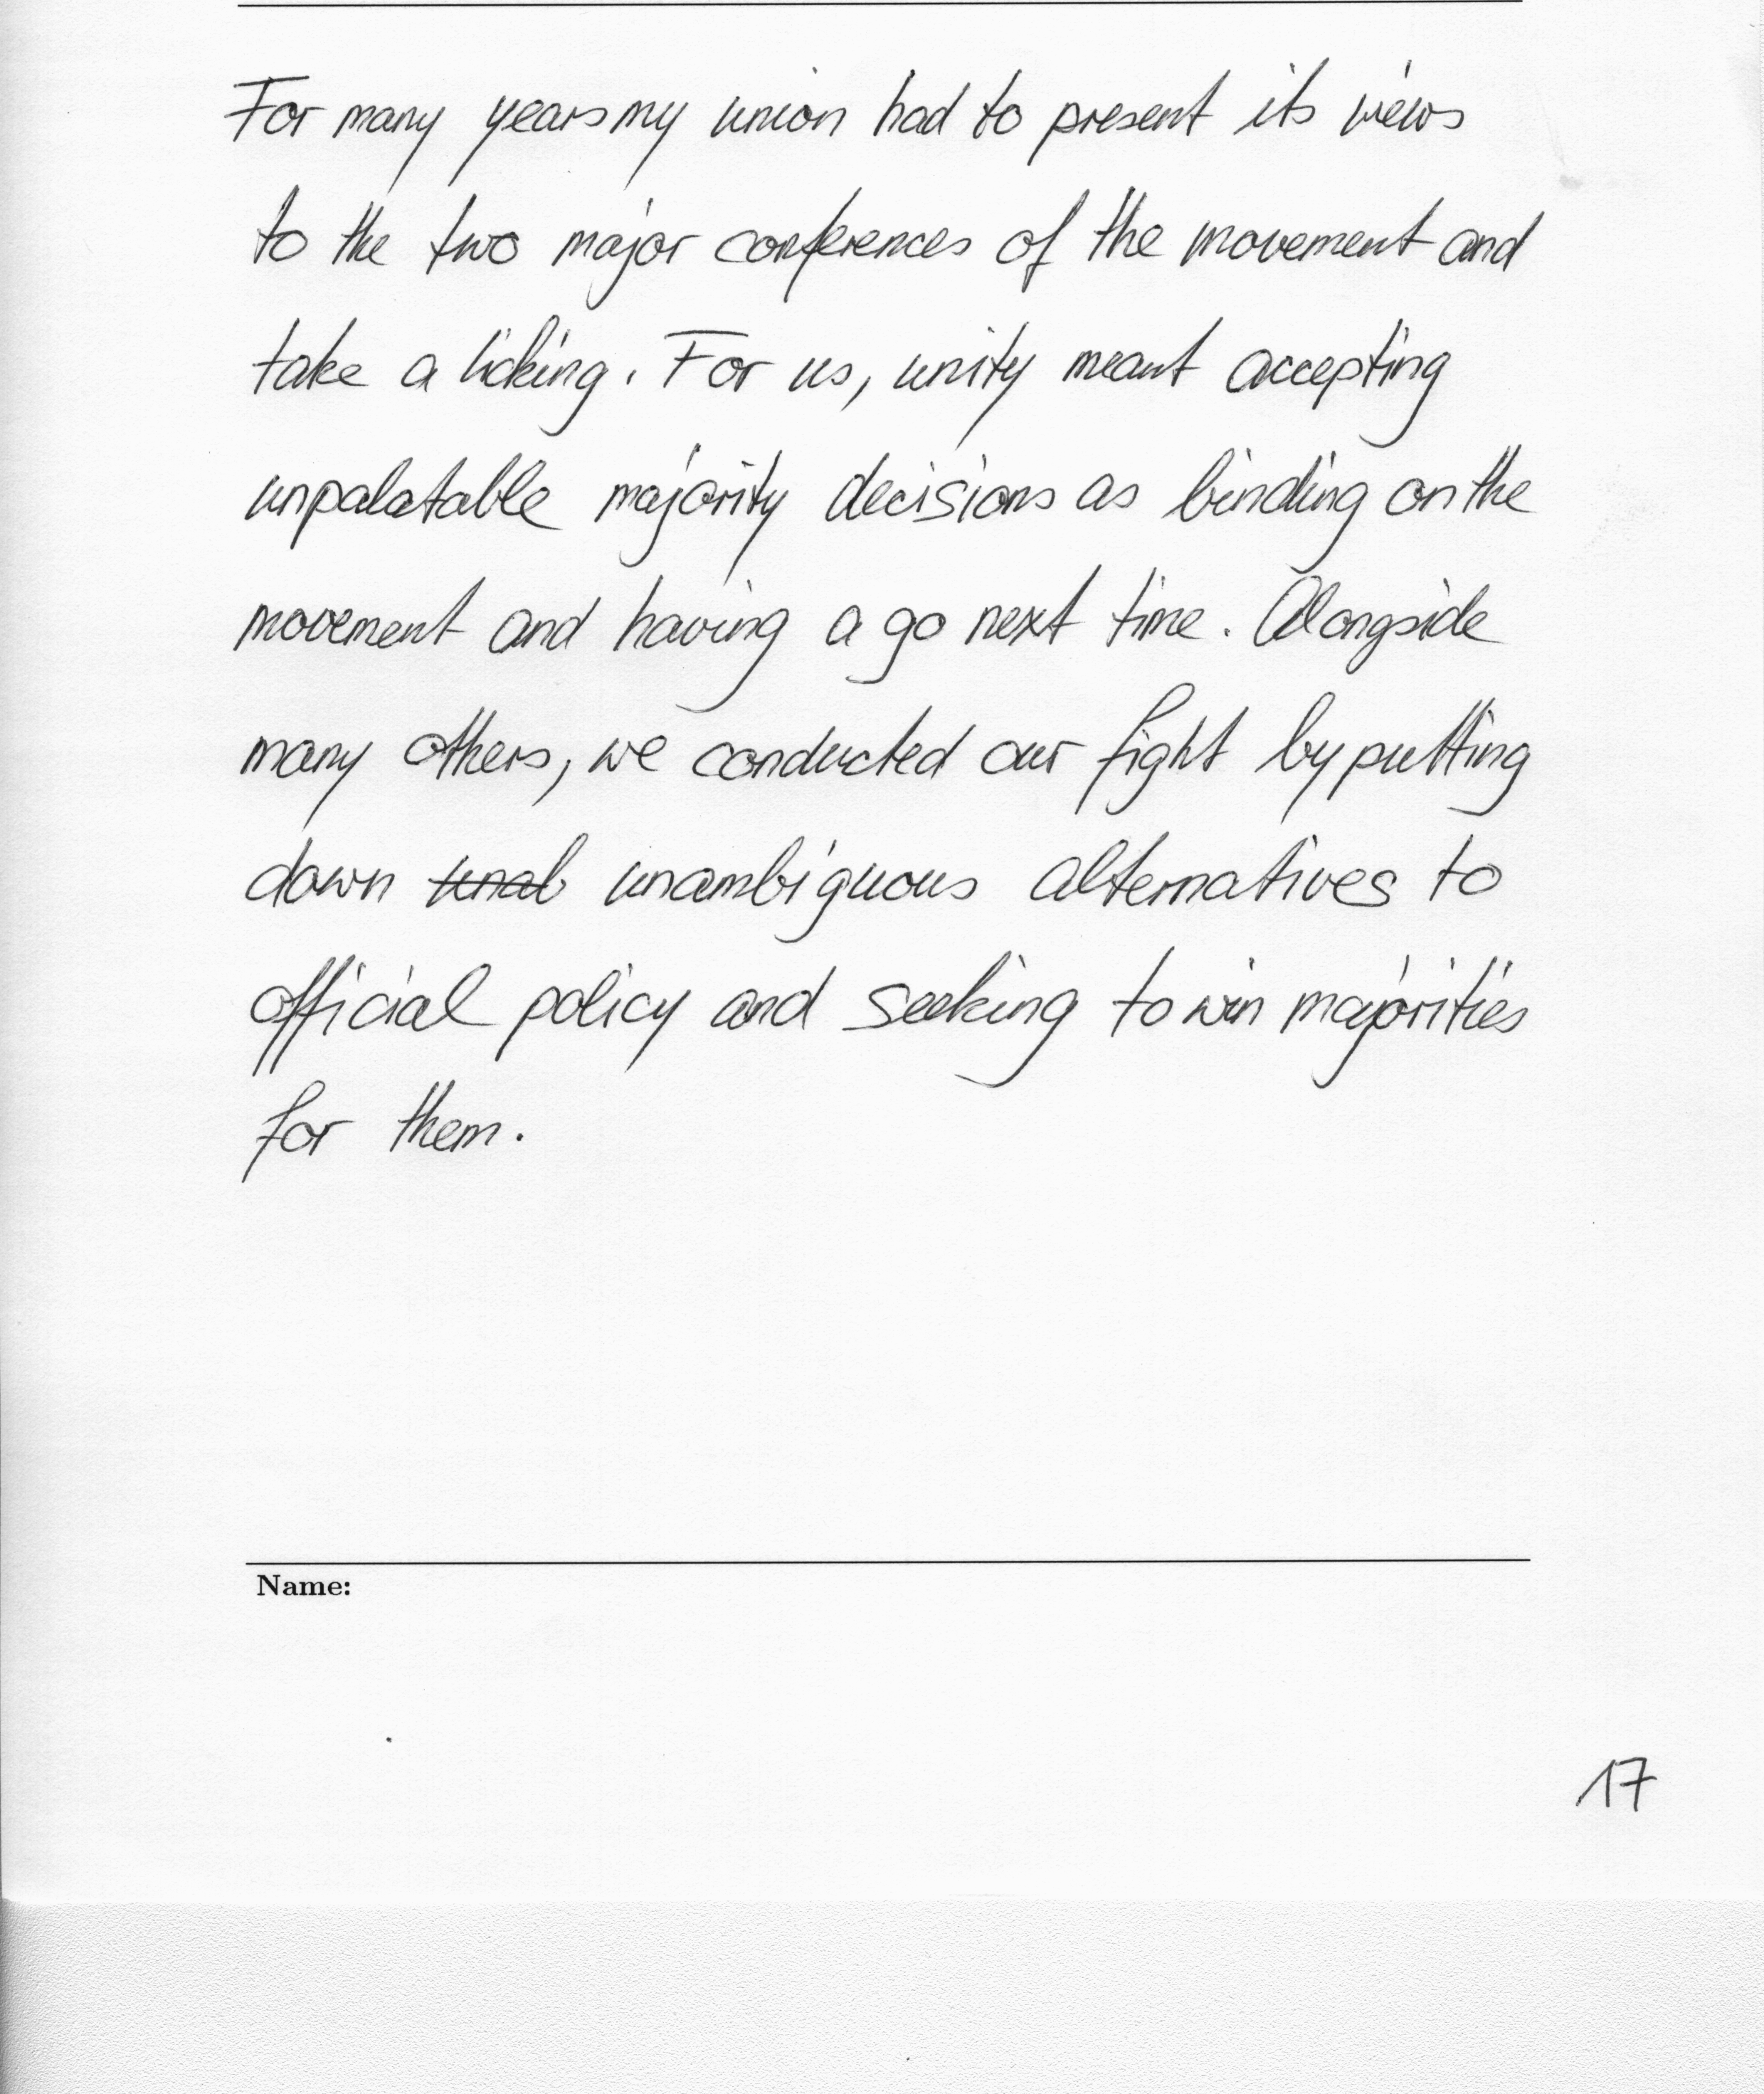 For many years my union had to present its views
to the two major conferences of the movement and
take a licking. For us, unity meant accepting
unpalatable majority decisions as binding on the
movement and having a go next time. Alongside
many others, we conducted our fight by putting
down unambiguous alternatives to
official policy and seeking to win majorities
for them.
Name:
17